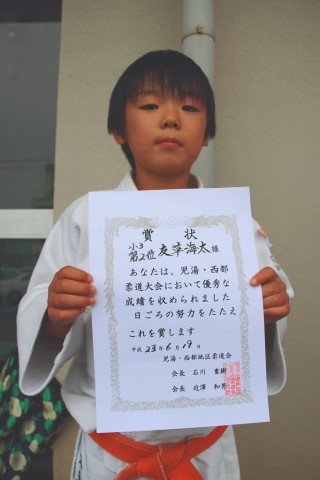 賞状
小3
第2位 友草海太 様
あなたは、児湯・西都
柔道大会において優秀な
成績を収められました
日ごろの努力をたたえ
これを賞します
平成 23年 6月 19日
児湯・西都地区柔道会
会長 石川 重樹
会長 近澤 和彦